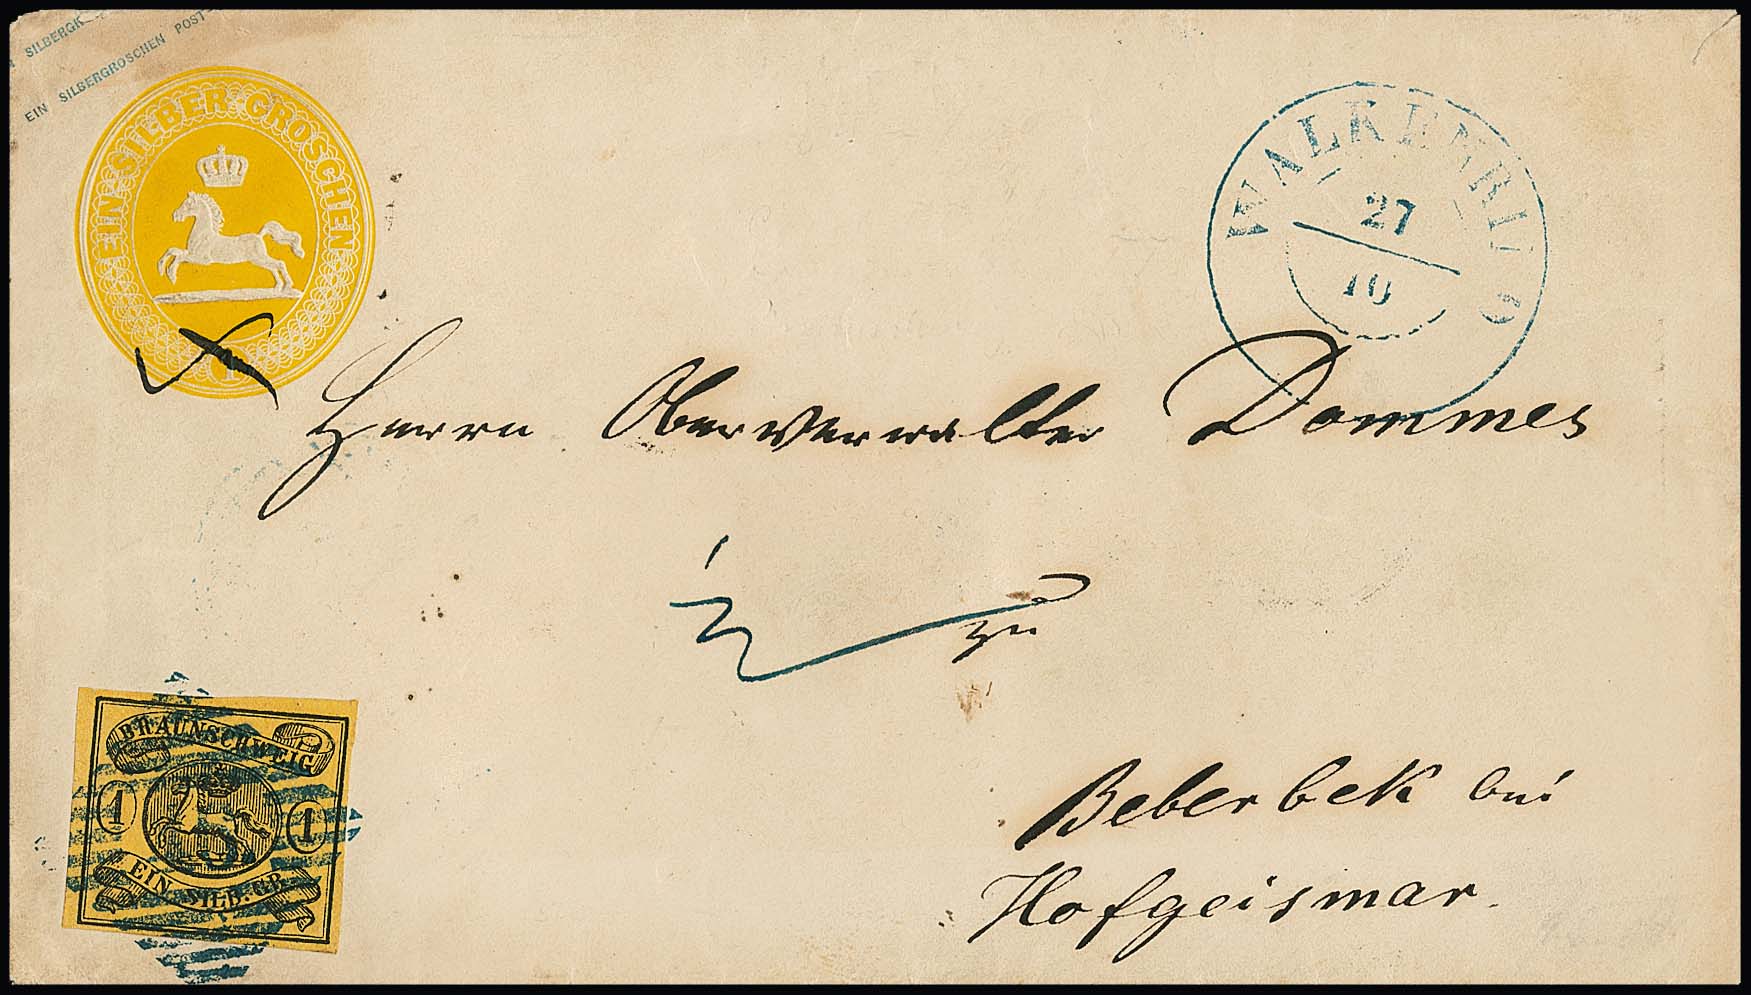 SILBERGR
EIN SILBERGROSCHEN POST-
EIN SILBER GROSCHEN
1
WALKENRIED
27
10
Herrn Oberverwalter Dommes
zu
Beberbek bei
Hofgeismar.
BRAUNSCHWEIG
1 1
EIN SILB. GR.